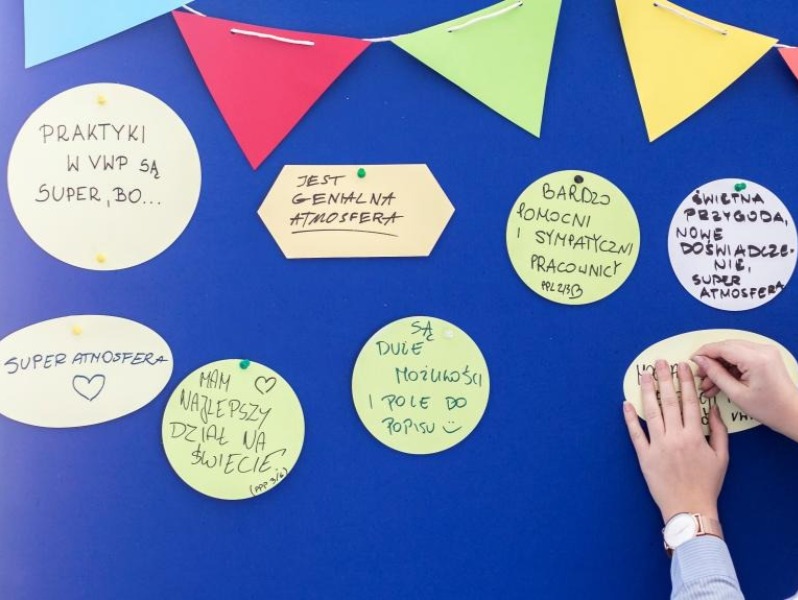 PRAKTYKI
W VWP SĄ
SUPER, BO...
JEST
GENIALNA
ATMOSFERA
BARDZO
POMOCNI
I SYMPATYCZNI
PRACOWNICY
PPL 2/3
ŚWIETNA
PRZYGODA,
NOWE
DOŚWIADCZE-
NIE,
SUPER
ATMOSFERA
SUPER ATMOSFERA
MAM
NAJLEPSZY
DZIAŁ NA
ŚWIECIE.
(PPP 3/6)
SĄ
DUŻE
MOŻLIWOŚCI
I POLE DO
POPISU